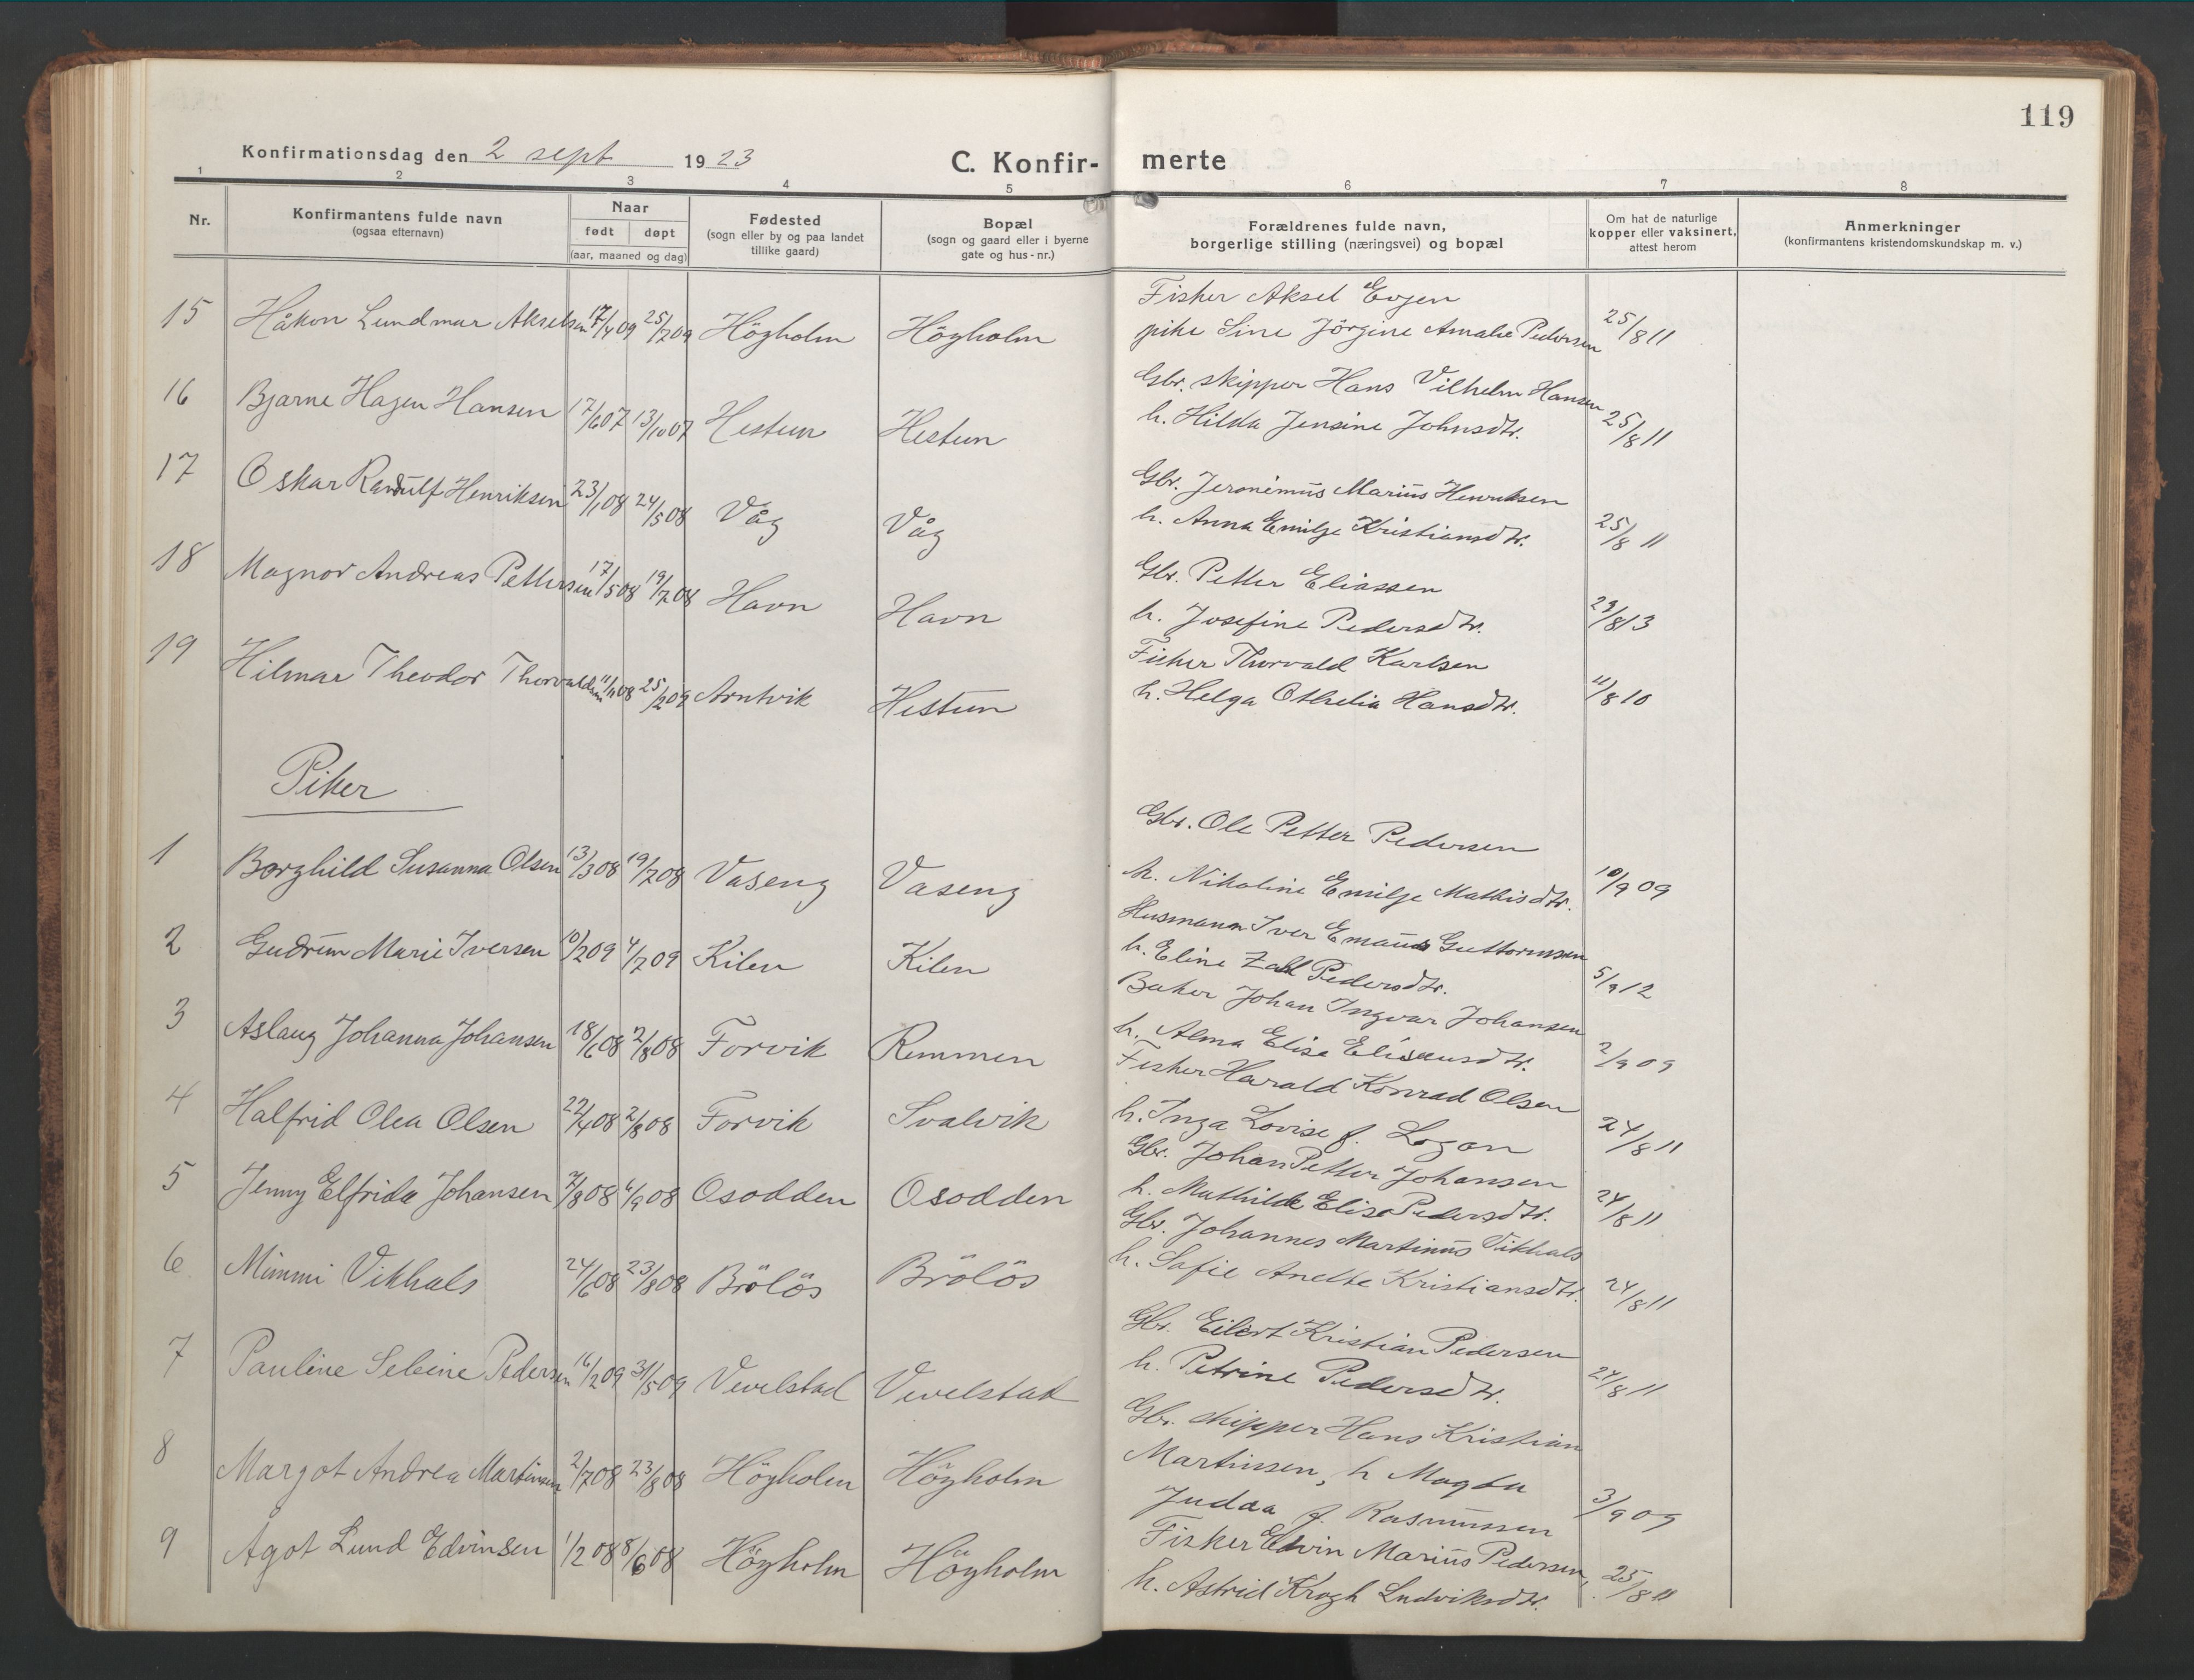 119
Konfirmationsdag den 2 sept 1923
C. Konfir- merte
1 2 3 4 5 6 7 8
Nr.
Konfirmantens fulde navn
(ogsaa efternavn)
Naar
født døpt
(aar, maaned og dag)
Fødested
(sogn eller by og paa landet
tillike gaard)
Bopæl
(sogn og gaard eller i byerne
gate og hus-nr.)
Forældrenes fulde navn,
borgerlige stilling (næringsvei) og bopæl
Om hat de naturlige
kopper eller vaksinert,
attest herom
Anmerkninger
(konfirmantens kristendomskundskap m. v.)
Fisker Aksel Evjen
15 Håkon Lundmar Akselsen 17/4 09 25/7 09 Högholm Högholm pike Sine Jörgine Amalie Pedersen 25/8 11
Gbr. skipper Hans Vilhelm Hansen
16 Bjarne Hagen Hansen 17/6 07 13/10 07 Hestun Hestun h. Hilda Jensine Johnsdtr. 25/8 11
Gbr. Jeronimus Marius Henriksen
17 Oskar Randulf Henriksen 23/1 08 24/5 08 Våg Våg h. Anna Emilje Kristiansdtr. 25/8 11
Gbr. Petter Eliassen
18 Magnor Andreas Pettersen 17/5 08 19/7 08 Havn Havn h. Josefine Pedersdtr. 23/8 13
Fisker Thorvald Karlsen
19 Hilmar Theodor Thorvaldsen 11/11 08 25/7 09 Arntvik Hestun h. Helga Othelia Hansdtr. 11/8 10
Piker
Gbr. Ole Petter Pedersen
1 Borghild Susanna Olsen 13/3 08 19/7 08 Vaseng Vaseng h. Nikoline Emilje Mathisdtr. 10/9 09
Husmann Iver Emaus Guttormsen
2 Gudrun Marie Iversen 10/2 09 4/7 09 Kilen Kilen h. Eline Zahl Pedersdtr. 5/9 12
Baker Johan Ingvar Johansen
3 Aslaug Johanna Johansen 18/6 08 2/8 08 Forvik Remmen h. Alma Elise Eliseusdtr. 2/9 09
Fisker Harald Konrad Olsen
4 Halfrid Olea Olsen 22/4 08 2/8 08 Forvik Svalvik h. Inga Lovise f. Logan 24/8 11
Gbr. Johan Petter Johansen
5 Jenny Elfrida Johansen 2/8 08 6/9 08 Osodden Osodden h. Mathilde Elise Pedersdtr. 24/8 11
Gbr. Johannes Martinus Vikhals
6 Mimmi Vikhals 24/6 08 23/8 08 Brölös Brölös h. Sofie Anette Kristiansdtr. 24/8 11
Gbr. Eilert Kristian Pedersen
7 Pauline Selsine Pedersen 16/2 09 31/5 09 Vevelstad Vevelstad h. Petrine Pedersdtr. 24/8 11
Gbr. skipper Hans Kristian
8 Margot Andrea Martinsen 2/7 08 23/8 08 Högholm Högholm Martinsen, h Magda
Judaa f. Rasmussen 3/9 09
Fisker Edvin Marius Pedersen,
9 Agot Lund Edvinsen 1/2 08 8/6 08 Högholm Högholm h. Astrid Krogh Ludviksdtr. 25/8 11